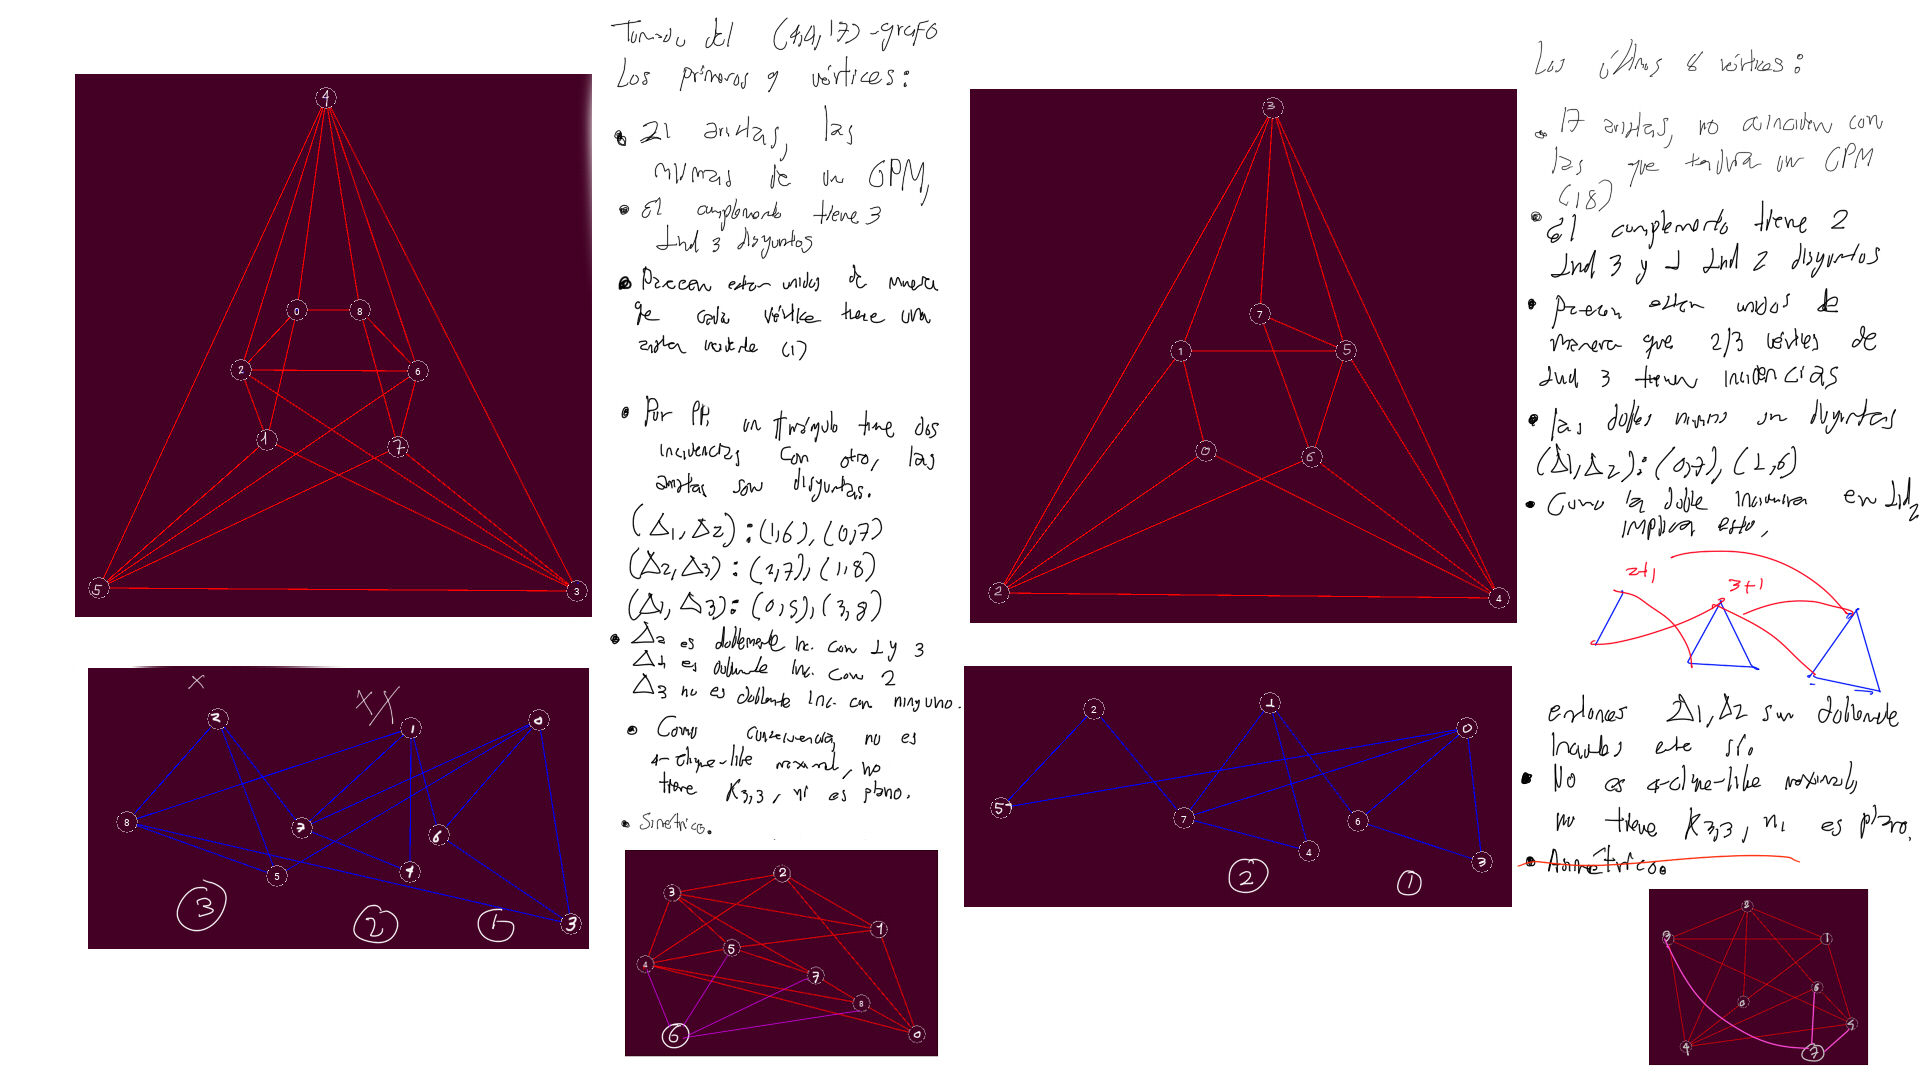 Tomado del (4,4,17)-grafo
Los primeros 9 vértices:
• 21 aristas, las
mismas de un GPM,
• El complemento tiene 3
Ind 3 disyuntos
• Parecen estar unidos de manera
que cada vértice tiene una
arista
• Por PP, un triángulo tiene dos
incidencias con otro, las
aristas son disyuntas.
(Δ1,Δ2):(1,6),(0,7)
(Δ2,Δ3):(2,7),(1,8)
(Δ1,Δ3):(0,5),(3,8)
• Δ2 es doblemente inc. con 1 y 3
Δ1 es doblemente inc. con 2
Δ3 no es doblemente inc. con ninguno.
• Como consecuencia, no es
4-clique-like maximal, no
tiene K3,3, ni es plano.
• Simétrico.
4
0
8
2
6
1
7
5
3
x
xx
2
1
0
8
7
6
5
4
3
3
2
1
2
3
1
5
4
7
8
6
0
Los últimos 8 vértices:
• 17 aristas, no coinciden con
las que tendría un GPM
(18)
• El complemento tiene 2
Ind 3 y 1 Ind 2 disyuntos
• Parecen estar unidos de
manera que 2/3 vértices de
Ind 3 tienen incidencias
• Las dobles uniones son disyuntas
(Δ1,Δ2):(0,7),(1,6)
• Como la doble incidencia en Ind2
implica esto,
2+1
3+1
entonces Δ1,Δ2 son doblemente
incidentes este sí.
• No es 4-clique-like maximal,
no tiene K3,3, ni es plano.
• Asimétrico.
3
7
1
5
0
6
2
4
2
1
0
5
7
6
4
3
2
1
2
3
1
6
0
5
4
7